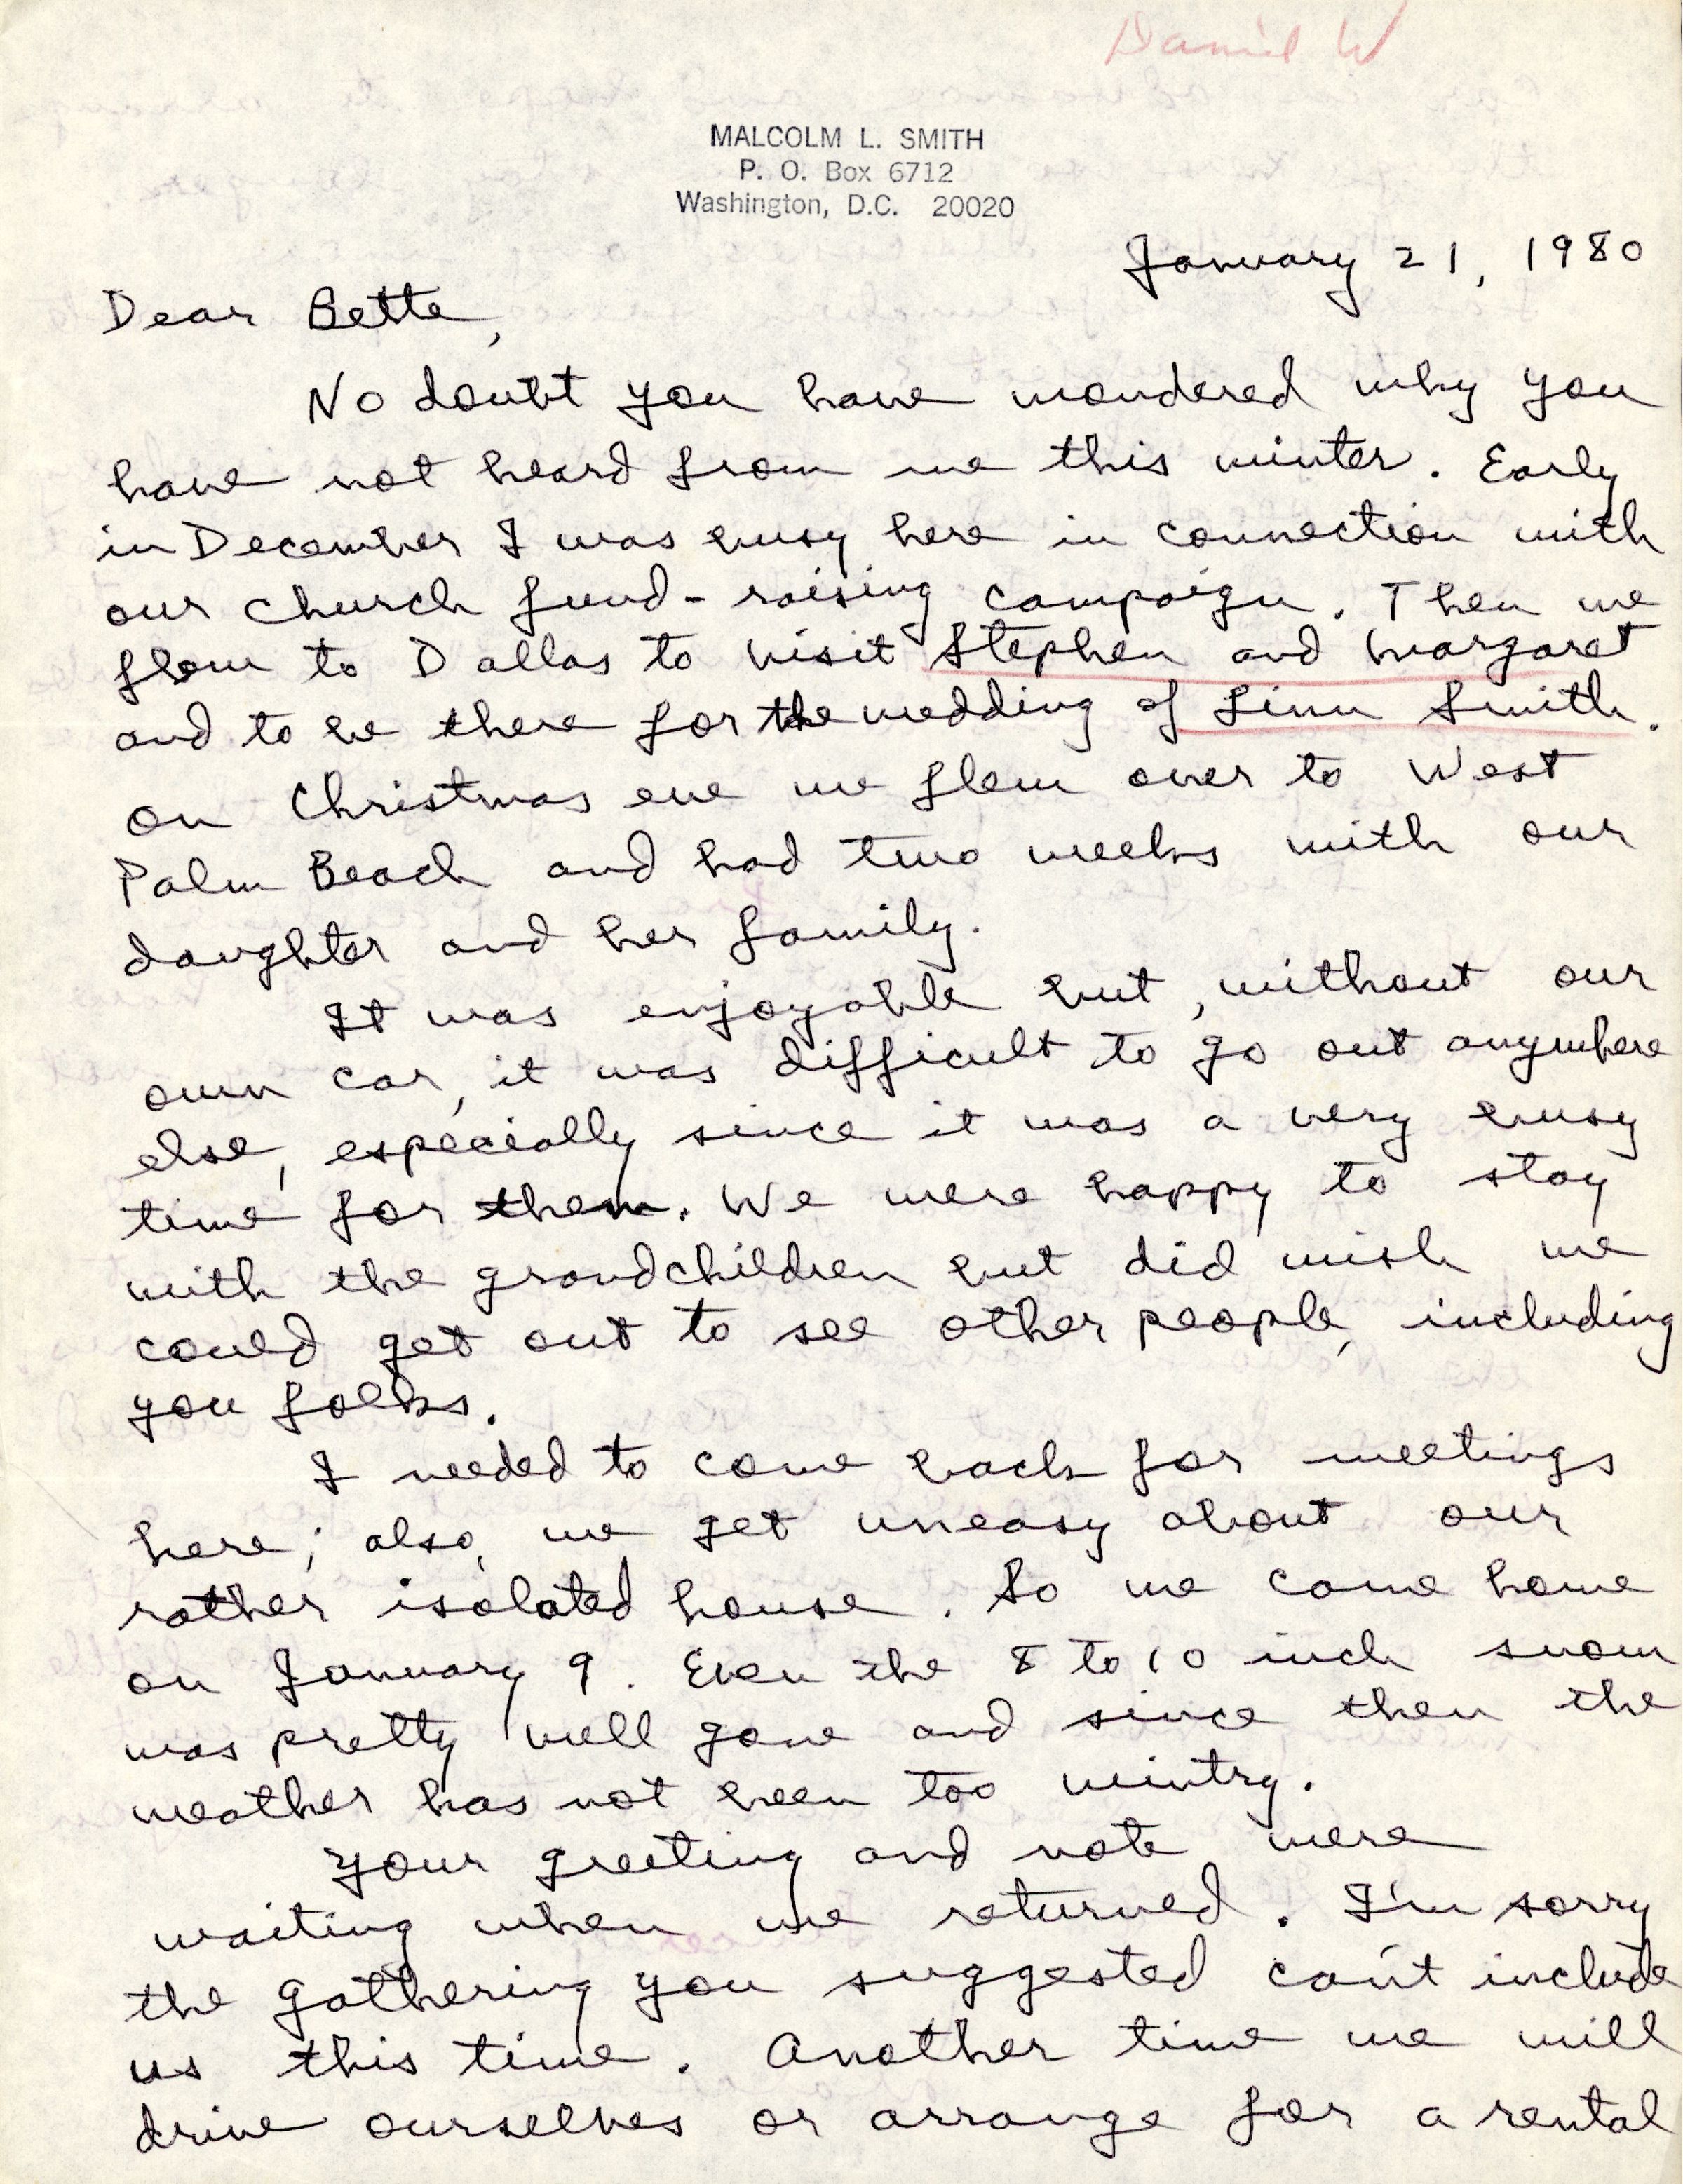 Daniel W
MALCOLM L. SMITH
P. O. Box 6712
Washington, D.C. 20020
January 21, 1980
Dear Bette,
No doubt you have wondered why you
have not heard from me this winter. Early
in December I was busy here in connection with
our church fund-raising campaign. Then we
flew to Dallas to visit Stephen and Margaret
and to be there for the wedding of Linn Smith.
On Christmas eve we flew over to West
Palm Beach and had two weeks with our
daughter and her family.
It was enjoyable but, without our
own car, it was difficult to go out anywhere
else, especially since it was a very busy
time for them. We were happy to stay
with the grandchildren but did wish we
could get out to see other people, including
you folks.
I needed to come back for meetings
here; also, we get uneasy about our
rather isolated house. So we came home
on January 9. Even the 8 to 10 inch snow
was pretty well gone and since then the
weather has not been too wintry.
Your greeting and note were
waiting when we returned. I'm sorry
the gathering you suggested can't include
us this time. Another time we will
drive ourselves or arrange for a rental